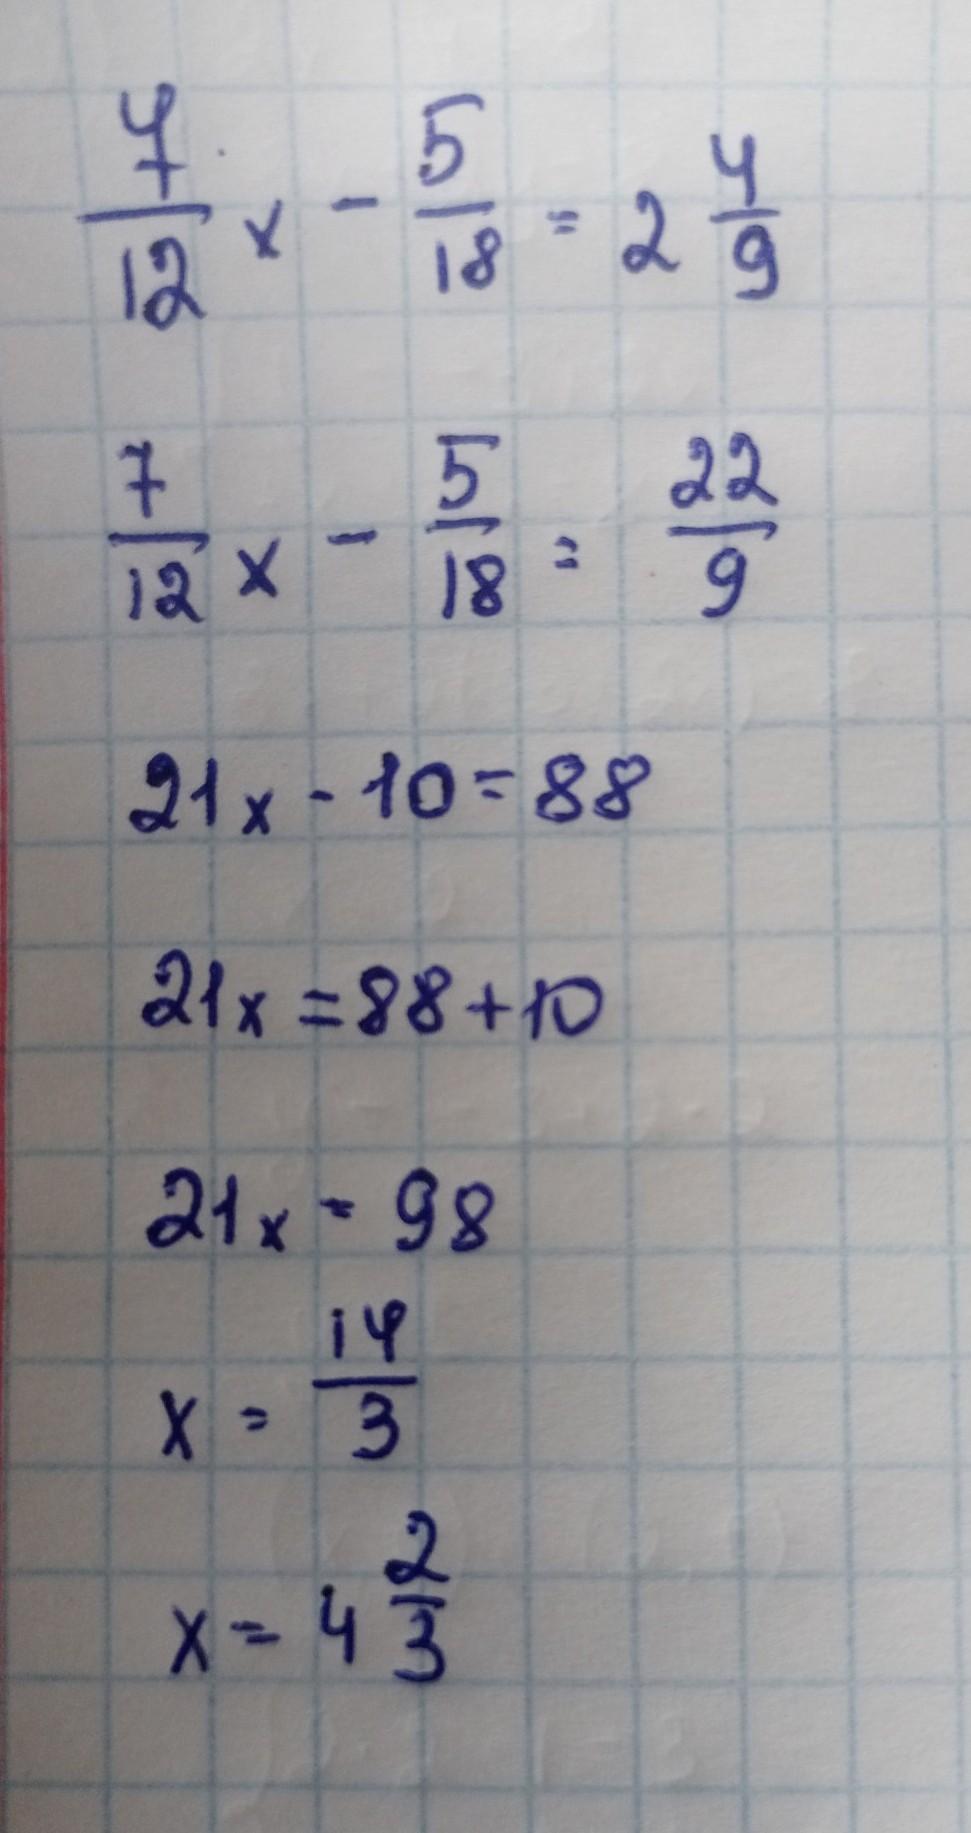 7/12 x - 5/18 = 2 4/9
7/12 x - 5/18 = 22/9
21x - 10 = 88
21x = 88 + 10
21x = 98
x = 14/3
x = 4 2/3